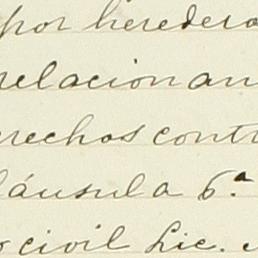 por heredero
relacionan
erechos contr
láusula 6.a
civil Lic.